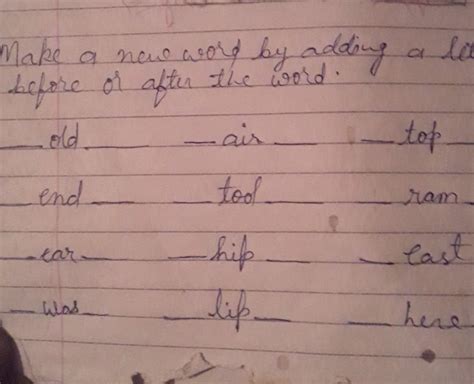 Make a new word by adding a let
before or after the word.
__old__ __air__ __top__
__end__ __tool__ __ram__
__ear__ __hip__ __east__
__was__ __lip__ __here__